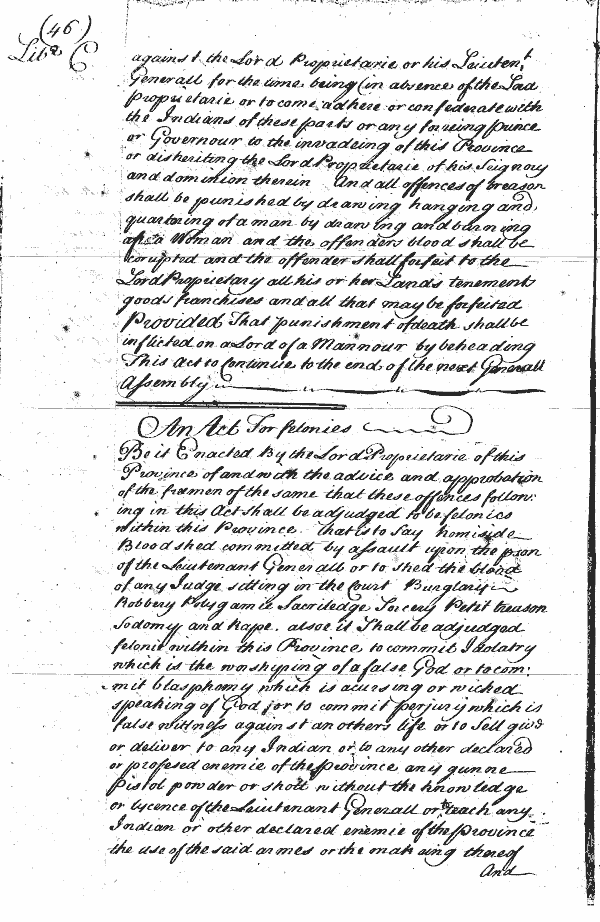 (46)
Libr C
against the Lord Proprietarie or his Leiutent
Generall for the time being (in absence of the Lord
Proprietarie or to come adhere or confederate with
the Indians of these parts or any forreing prince
or Governour to the invadeing of this Province
or disheriting the Lord Proprietarie of his Seignory
and dominion therein And all offences of treason
shall be punished by drawing hanging and
quartering of a man by drawing and burning
of a Woman and the offenders blood shall be
corrupted and the offender shall forfeit to the
Lord Proprietary all his or her Lands tenements
goods franchises and all that may be forfeited
Provided That punishment of death shall be
inflicted on a Lord of a Mannour by beheading
This Act to Continue to the end of the next Generall
Assembly
An Act For felonies
Be it Enacted By the Lord Proprietarie of this
Province of and with the advice and approbation
of the freemen of the same that these offences follow:
ing in this Act shall be adjudged to be felonies
within this Province That is to Say homiside
Bloodshed committed by assault upon the prson
of the Lieutenant Generall or to shed the blood
of any Judge sitting in the Court Burglary
Robbery Polygamie Sacriledge Sorcery Petit treason
Sodomy and Rape. alsoe it Shall be adjudged
felonie within this Province to commit Idolatry
which is the worshiping of a false God or to com:
mit blasphomy which is acursing or wicked
speaking of God for to commit perjury which is
false wittness against an others life or to Sell give
or deliver to any Indian or to any other declared
or profesed enemie of the province any gunne
Pistol powder or shott without the knowledge
or lycence of the Leiutenant Generall or to teach any
Indian or other declared enemie of the Province
the use of the said armes or the making thereof
And